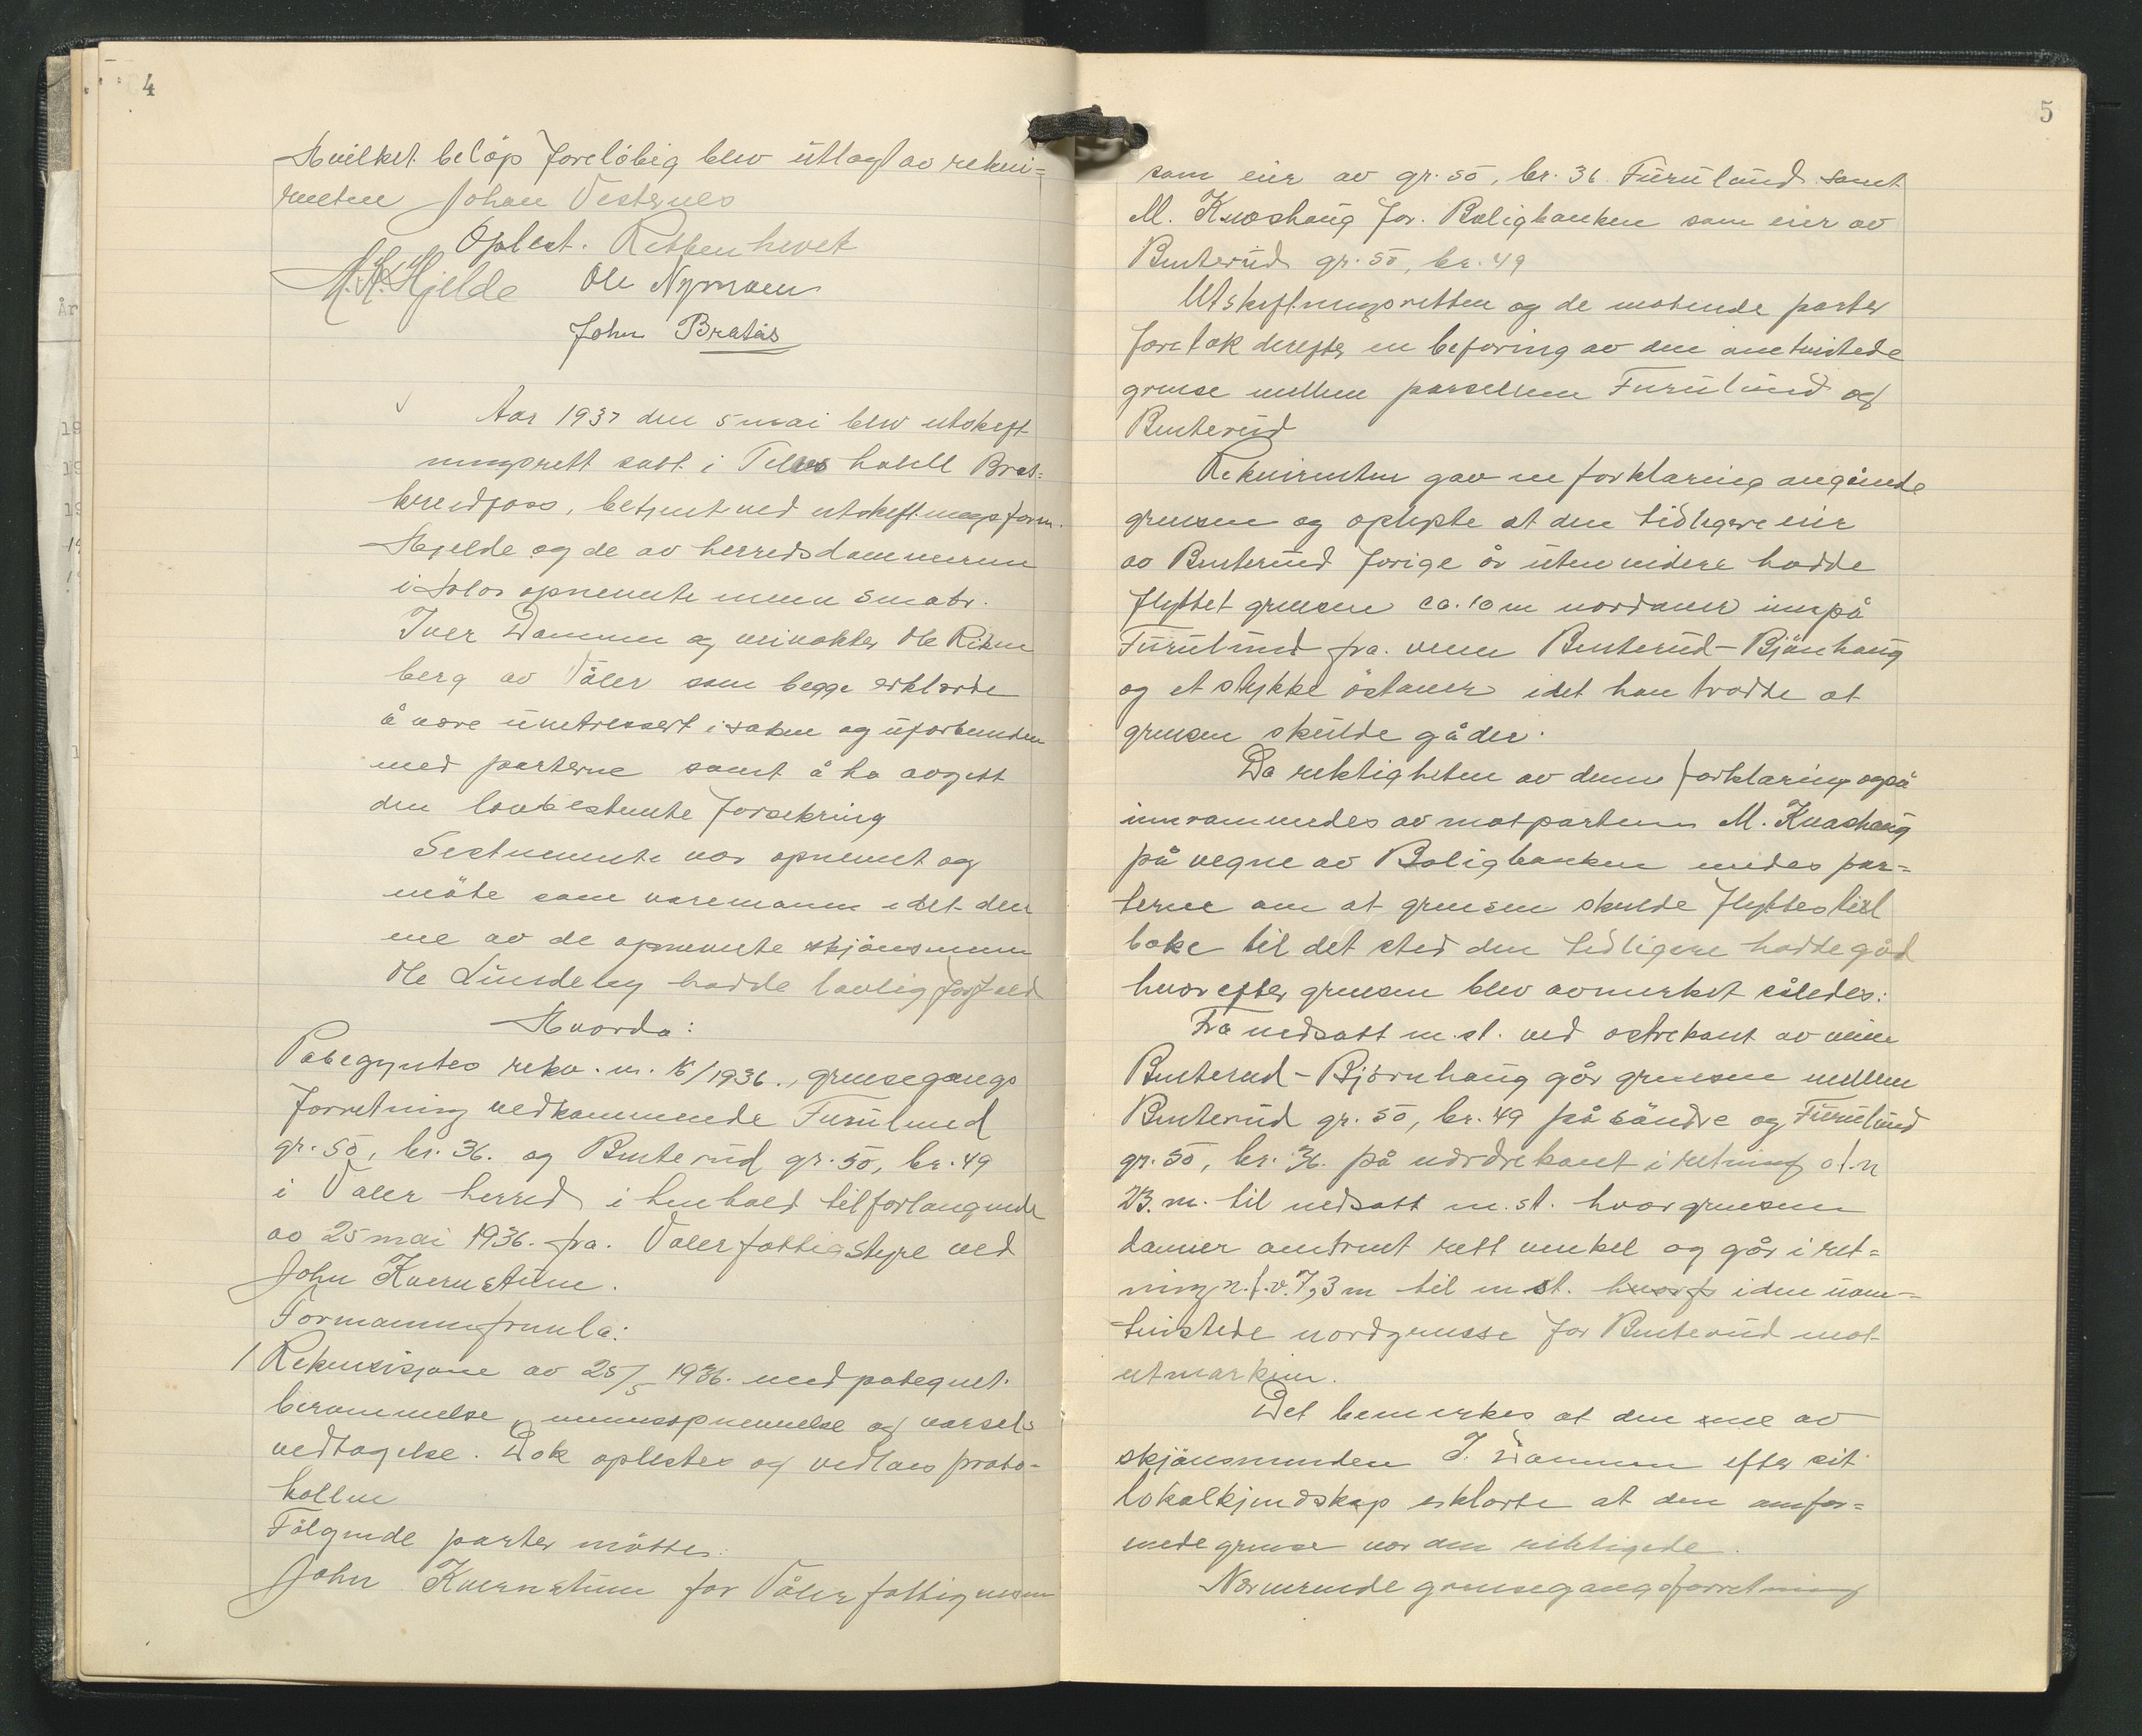 4
Hvilket beløp foreløbig blev utlagt av rekvi-
renten Johan Vesternes
Oplest. Retten hevet
M. H. Hjelde Ole Nymoen
John Bratås
Aar 1937 den 5 mai blev utskift
ningsrett satt i hotell Bras-
kereidfoss, betjent ved utskiftningsform.
Hjelde og de av herredsdommeren
i Solør opnevnte menn småbr.
Iver Dammen og veivokter Ole Risen
berg av Våler som begge erklærte
å være uintressert i saken og uforbunden
med parterne samt å ha avgitt
den lovbestemte forsikring
Sistnevnte var opnevnt og
møte som varemann idet den
ene av de opnevnte skjönsmenn
Ole Lindeby hadde lovlig forfald
Hvorda:
Påbegyntes rekv. nr. 15/1936., grensegangs
forretning vedkommende Furulund
gr. 50, br. 36. og Buterud gr. 50, br. 49
i Våler herred i henhold til forlangende
av 25 mai 1936. fra. Våler fattigstyre ved
John Kvernstuen.
Formannen fremla:
1 Rekvisisjone av 25/5 1936. med påtegnet.
berammelse, mennsopnevnelse og varsels
vedtagelse. Dok oplestes og vedlaes proto-
kollen
Fölgende parter mötte:
John Kvernstuen for Våler fattigvesen
5
som eier av gr. 50, br. 36 Furulund samt
M. Kvashaug for. Boligbanken som eier av
Buterud gr. 50, br. 49
Utskiftningsretten og de møtende parter
foretok derefter en befaring av den omtvistede
grense mellem parsellene Furulund og
Buterud
Rekvirenten gav en forklaring angående
grensen og oplyste at den tidligere eier
av Buterud forige år uten videre hadde
flyttet grensen ca. 10 m nordover innpå
Furulund fra. veien Buterud - Björnhaug
og et stykke östover idet han trodde at
grensen skulde gå der.
Da riktigheten av denne forklaring også
innrømmedes av motparten M. Kvashaug
på vegne av Boligbanken enedes par-
terne om at grensen skulde flyttes til
bake til det sted den tidligere hadde gåd
hvorefter grensen blev avmerket således:
Fra nedsatt m. st. ved østrekant av veien
Buterud - Björnhaug går grensen mellem
Buterud gr. 50, br. 49 på söndre og Furulund
gr. 50, br. 36. på nordre kant i retning o.t.n
23. m. til nedsatt m. st. hvor grensen
danner omtrent rett vinkel og går i ret-
ning n.t.v. 7,3 m til m st. i den uom-
tvistede nordgrense for Buterud mot
utmarken.
Det bemerkes at den ene av
skjönsmenden I. Dammen efter sit
lokalkjendskap erklærte at den omfor-
enede grense var den riktigede.
Nærværende grensegangsforretning